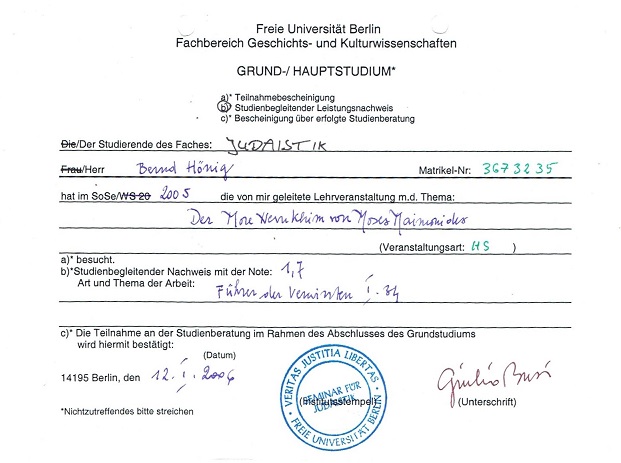 Freie Universität Berlin
Fachbereich Geschichts- und Kulturwissenschaften
GRUND-/ HAUPTSTUDIUM*
a)* Teilnahmebescheinigung
b)* Studienbegleitender Leistungsnachweis
c)* Bescheinigung über erfolgte Studienberatung
Die/Der Studierende des Faches: JUDAISTIK
Frau/Herr Bernd Hönig Matrikel-Nr: 3673235
hat im SoSe/WS 20 2005 die von mir geleitete Lehrveranstaltung m.d. Thema:
Der More Nevukhim von Moses Maimonides
(Veranstaltungsart: HS )
a)* besucht.
b)*Studienbegleitender Nachweis mit der Note: 1,7
Art und Thema der Arbeit: Führer der Verwirrten I. 34
c)* Die Teilnahme an der Studienberatung im Rahmen des Abschlusses des Grundstudiums
wird hiermit bestätigt:
(Datum)
14195 Berlin, den 12. I. 2006
VERITAS JUSTITIA LIBERTAS
SEMINAR FÜR
JUDAISTIK
FREIE UNIVERSITÄT BERLIN
(Institutsstempel)
Giulio Busi
(Unterschrift)
*Nichtzutreffendes bitte streichen